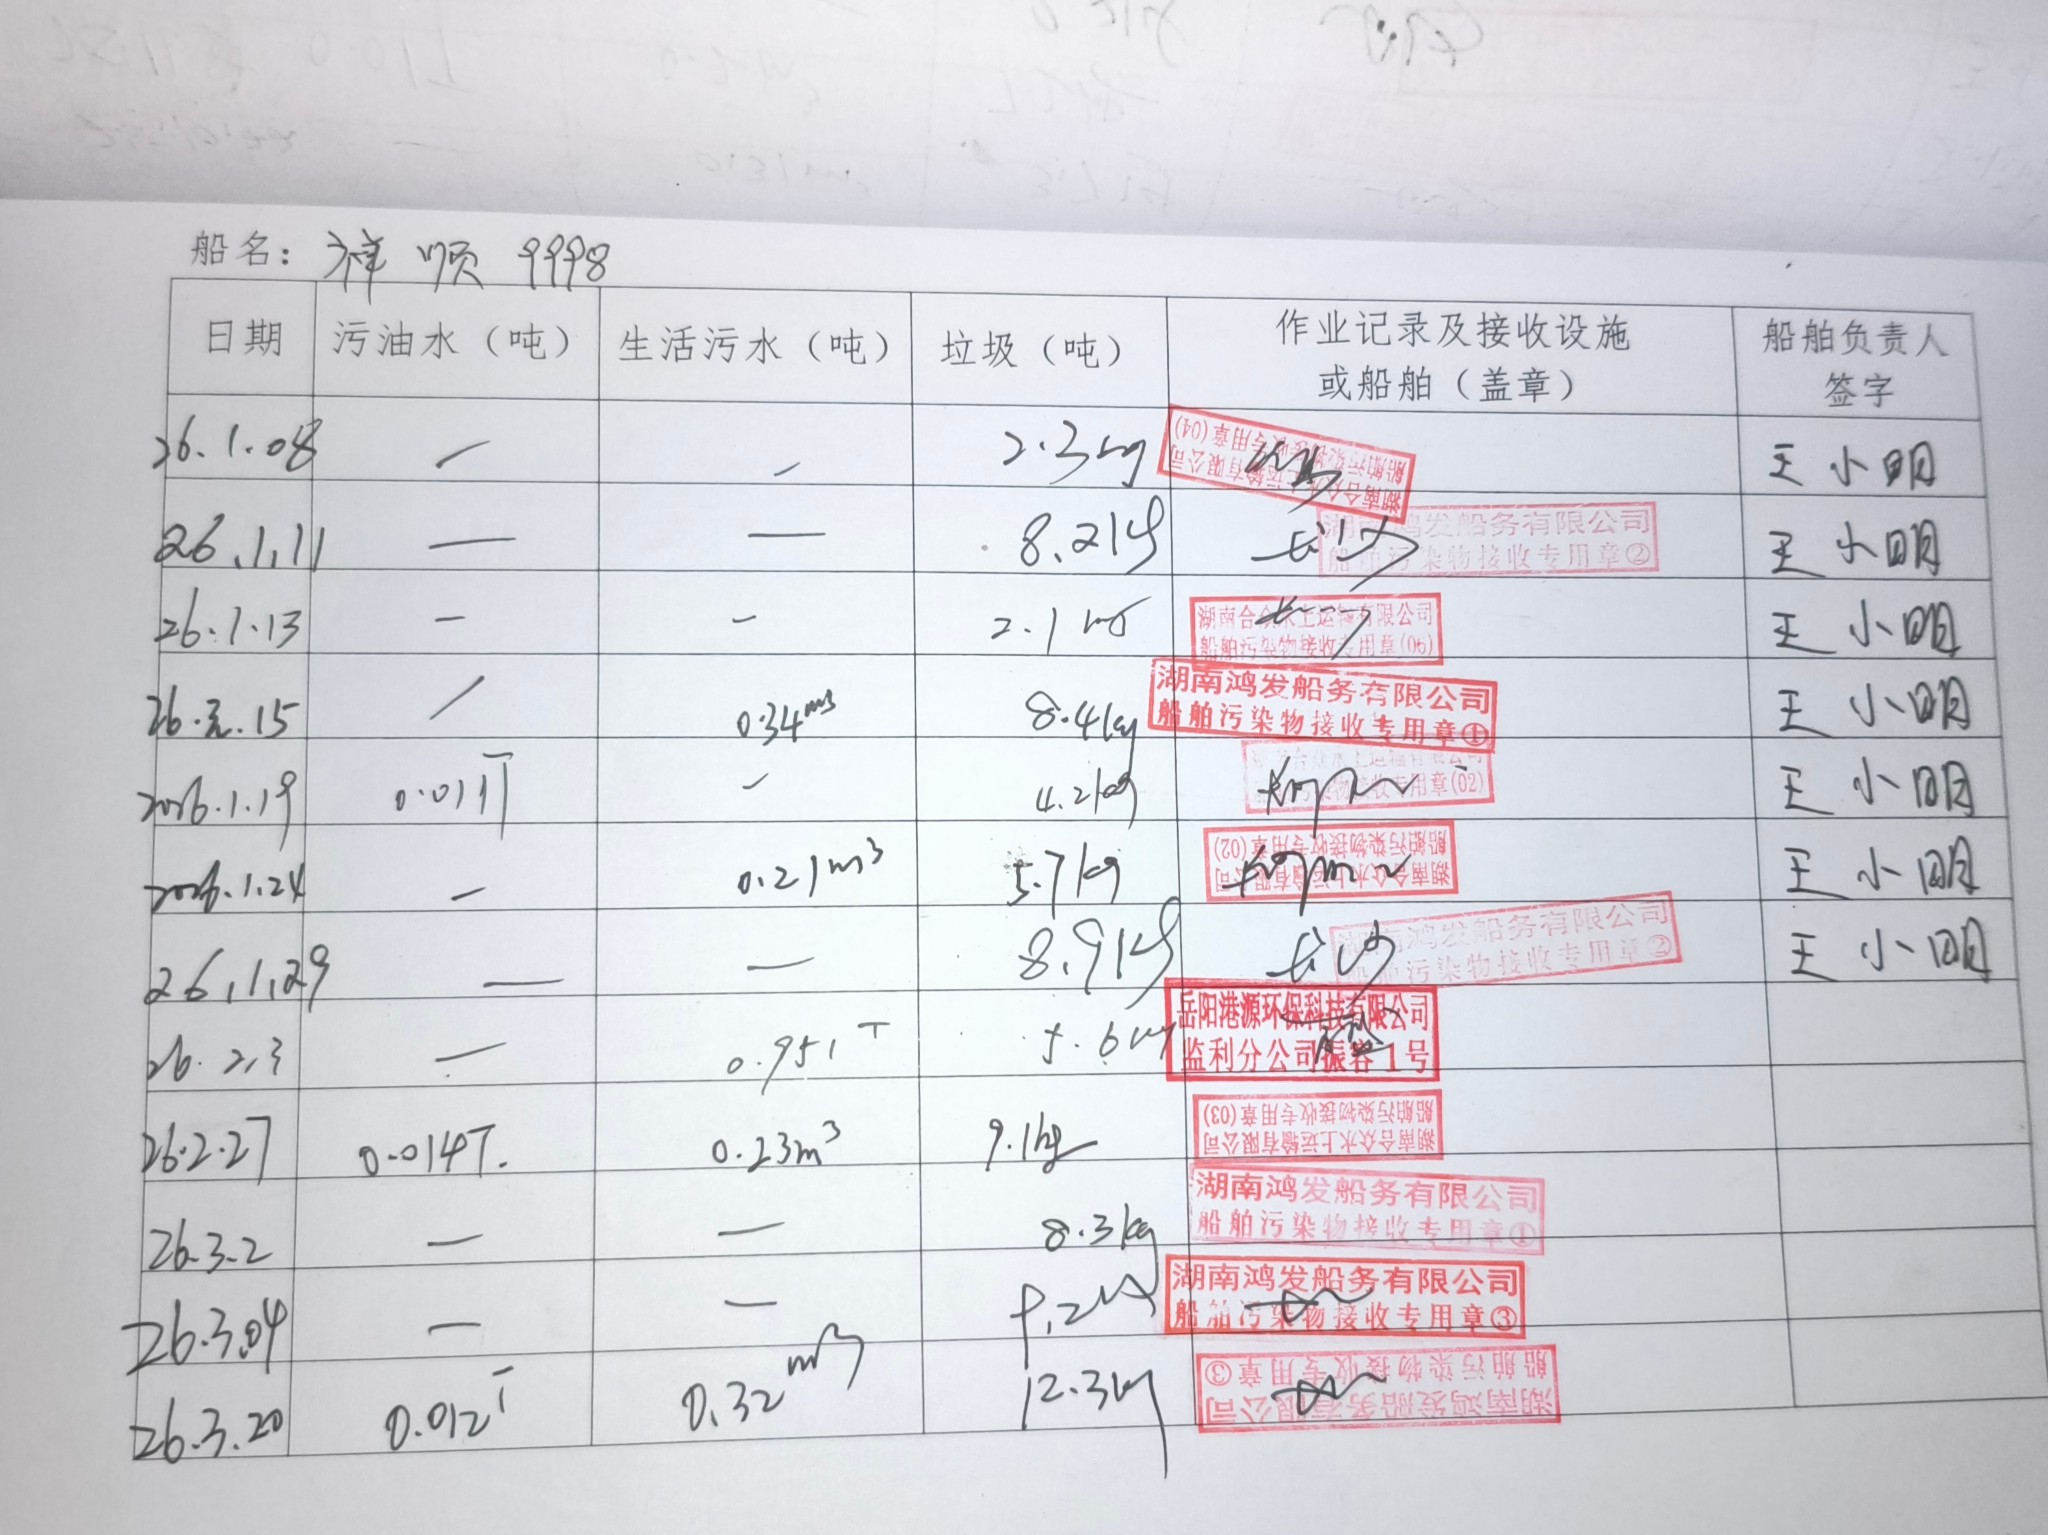 船名: 祥顺 9998
日期 污油水（吨） 生活污水（吨） 垃圾（吨） 作业记录及接收设施或船舶（盖章） 船舶负责人签字
26.1.08 — — 2.3kg 湖南合众水上运输有限公司 船舶污染物接收专用章(04) 王小明
26.1.11 — — 8.21kg 长沙 湖南鸿发船务有限公司 船舶污染物接收专用章② 王小明
26.1.13 — — 2.1kg 湖南合众水上运输有限公司 船舶污染物接收专用章(06) 王小明
26.元.15 / 0.34m3 8.4kg 湖南鸿发船务有限公司 船舶污染物接收专用章① 王小明
2026.1.19 0.011T — 4.2kg 湖南合众水上运输有限公司 船舶污染物接收专用章(02) 王小明
2026.1.24 — 0.21m3 5.7kg 湖南合众水上运输有限公司 船舶污染物接收专用章(02) 王小明
26.1.29 — — 8.9kg 长沙 湖南鸿发船务有限公司 船舶污染物接收专用章② 王小明
26.2.3 — 0.951T 5.6kg 岳阳港源环保科技有限公司 监利分公司振容1号
26.2.27 0.014T. 0.23m3 9.1kg 湖南合众水上运输有限公司 船舶污染物接收专用章(03)
26.3.2 — — 8.3kg 湖南鸿发船务有限公司 船舶污染物接收专用章①
26.3.04 — — 9.2kg 湖南鸿发船务有限公司 船舶污染物接收专用章③
26.3.20 0.012T 0.32m3 12.3kg 湖南鸿发船务有限公司 船舶污染物接收专用章③